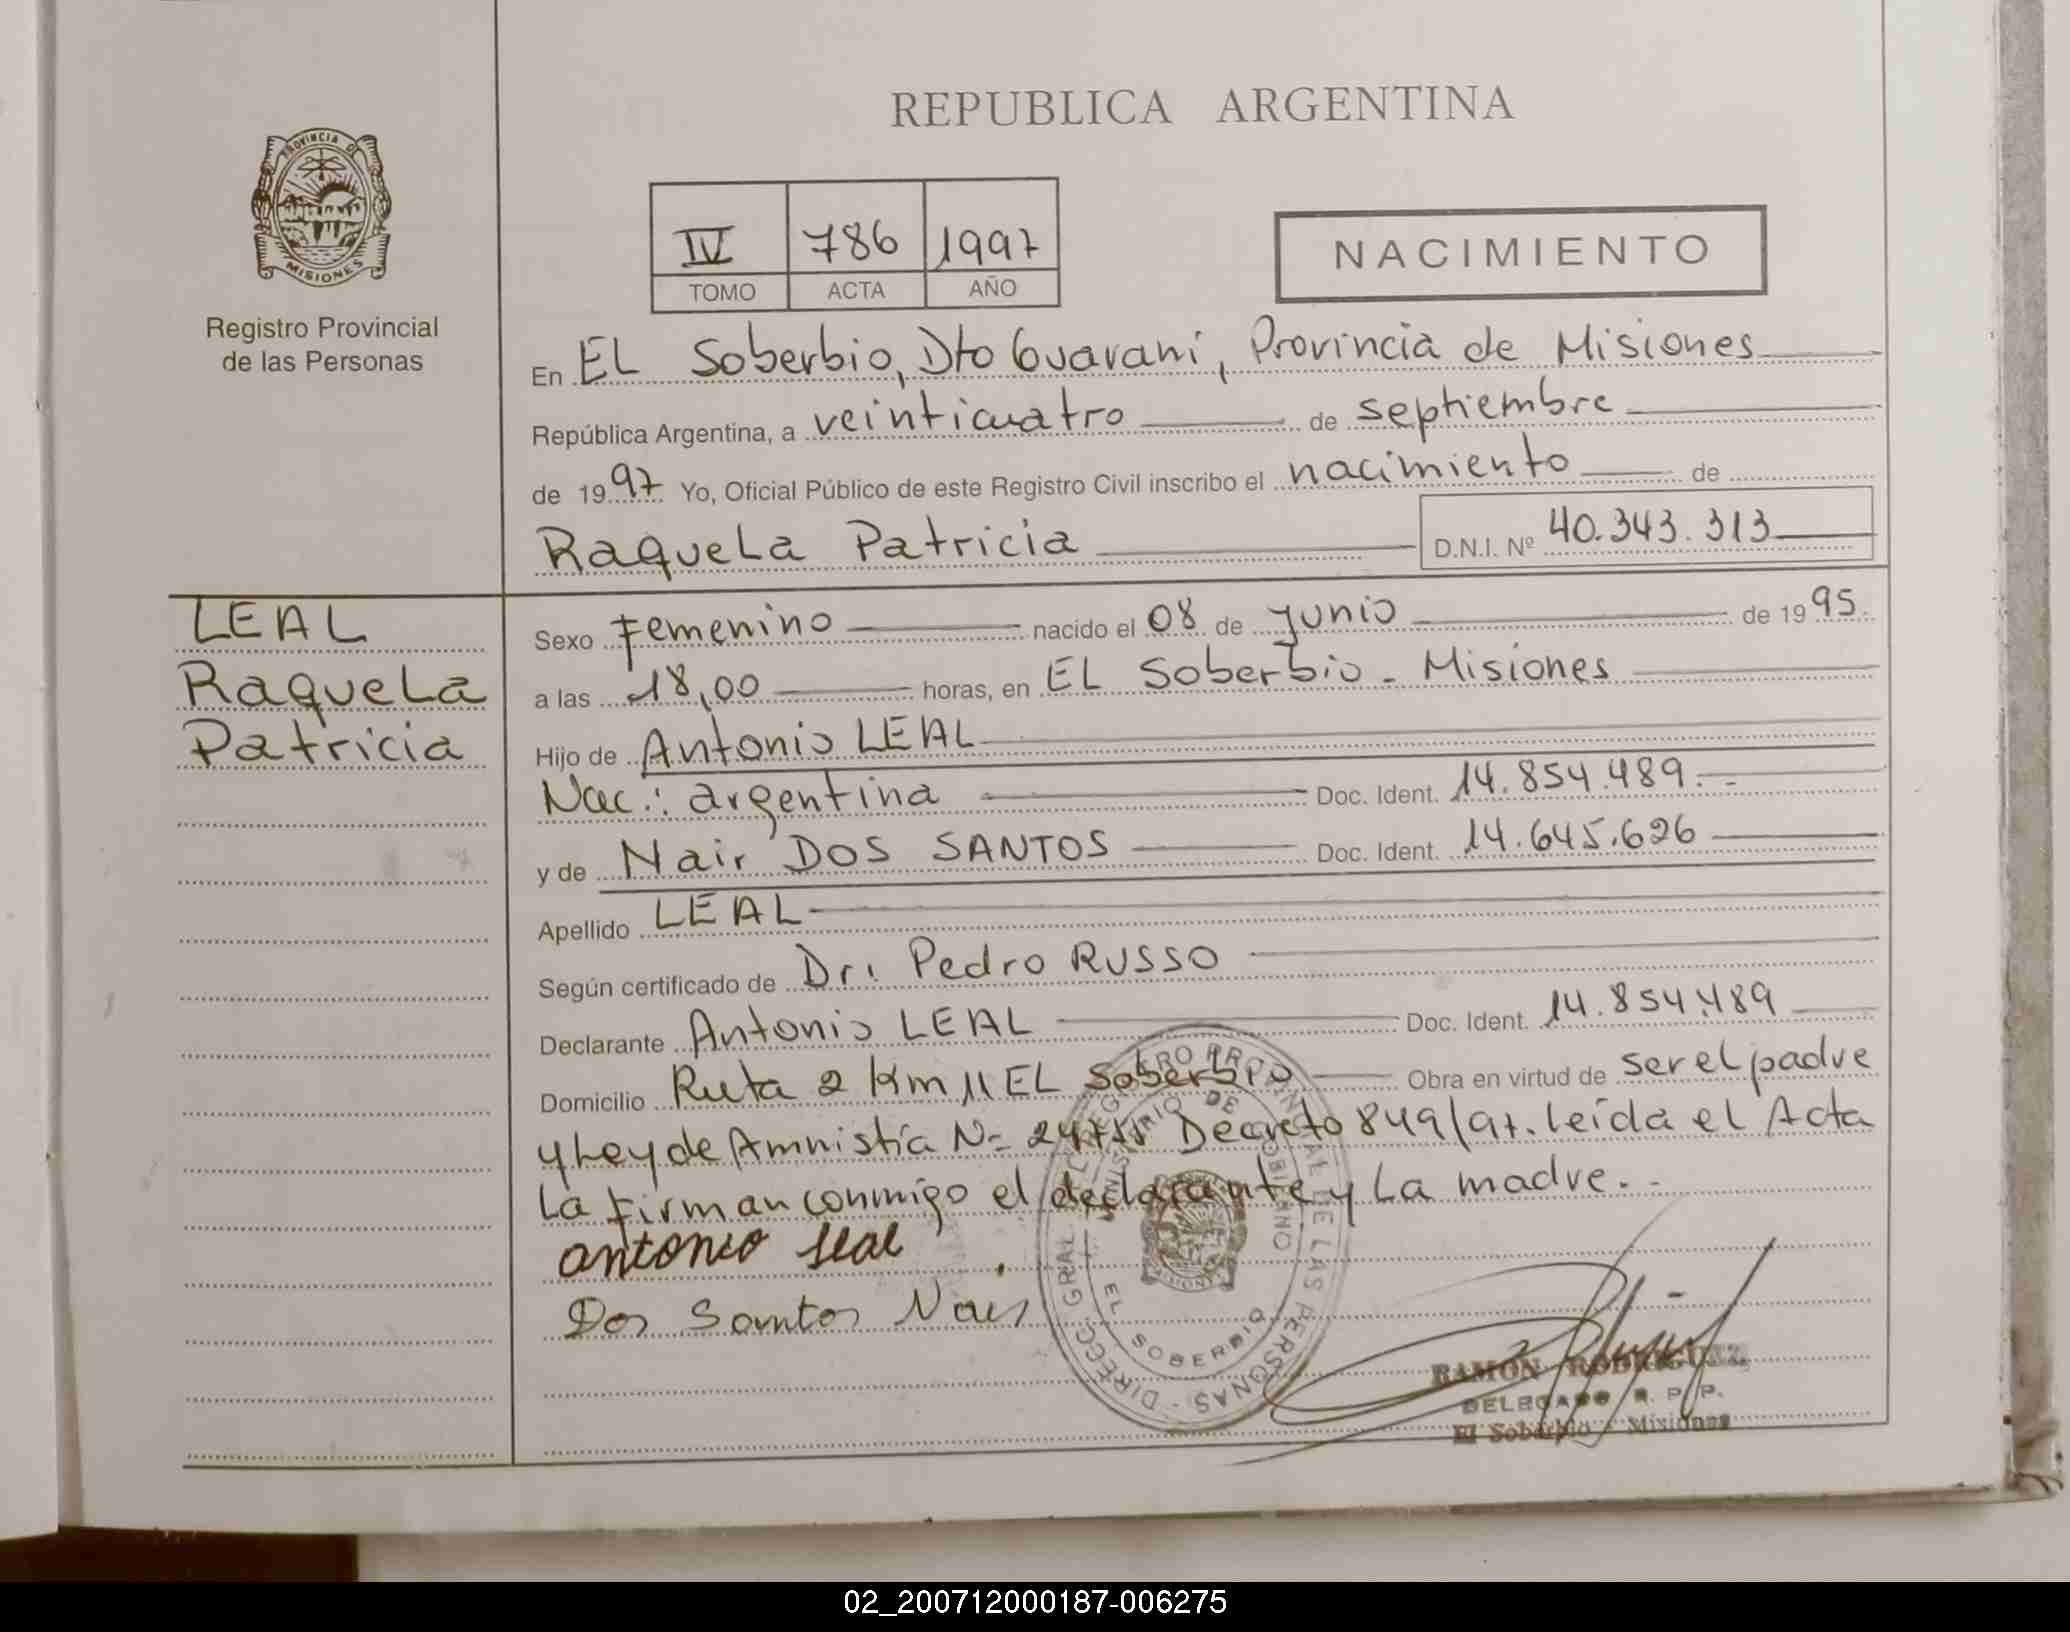 REPUBLICA ARGENTINA
PROVINCIA DE
MISIONES
Registro Provincial
de las Personas
IV 786 1997
TOMO ACTA AÑO
NACIMIENTO
En EL Soberbio, Dto Guarani, Provincia de Misiones
República Argentina, a veinticuatro de septiembre
de 1997 Yo, Oficial Público de este Registro Civil inscribo el nacimiento de
Raquela Patricia D.N.I. Nº 40.343.313
LEAL
Raquela
Patricia
Sexo Femenino nacido el 08 de junio de 1995.
a las 18,00 horas, en EL Soberbio - Misiones
Hijo de Antonio LEAL
Nac.: argentina Doc. Ident. 14.854.489.-
y de Nair DOS SANTOS Doc. Ident. 14.645.626
Apellido LEAL
Según certificado de Dr. Pedro RUSSO
Declarante Antonio LEAL Doc. Ident. 14.854.489
Domicilio Ruta 2 Km 11 EL Soberbio Obra en virtud de ser el padre
y Ley de Amnistía N= Decreto 849/97. leída el Acta
La firman conmigo el declarante y La madre.-
antonio leal
Dos Santos Nair
DIRECC. GRAL. DEL REGISTRO PROVINCIAL DE LAS PERSONAS
MINISTERIO DE GOBIERNO
EL SOBERBIO
RAMON RODRIGUEZ
DELEGADO R. P. P.
El Soberbio - Misiones
02_200712000187-006275